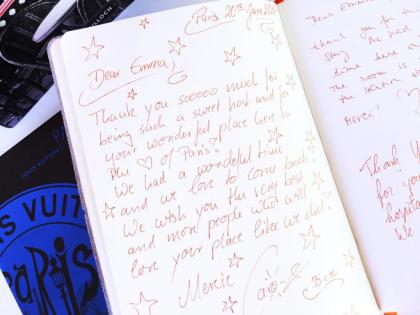 Paris 20th June
Dear Emma,
Thank you sooooo much for
being such a sweet host and for
your wonderful place here in
the ♡ of Paris.
We had a wonderful time
and we love to come back!
We wish you the very best
and more people who will
love your place like we did!
Mercie
Dear Emma
thank you for
stay. We had
time here
The room is
the location
Merci!
Thank
for you
hospita
We
LOUIS VUITTON
IS VUIT
PARIS